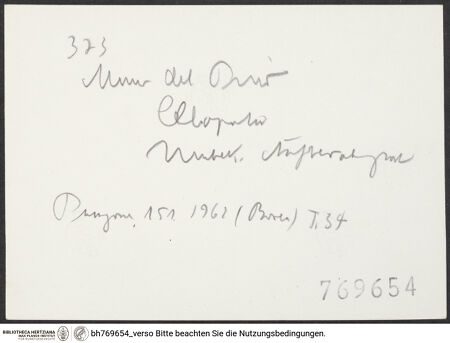 323
del
Cleopatra
Unbek. Aufbewahrgsort
Paragone, 151 1962 (Borea) T. 34
769654
BIBLIOTHECA HERTZIANA
MAX-PLANCK-INSTITUT
FÜR KUNSTGESCHICHTE
bh769654_verso Bitte beachten Sie die Nutzungsbedingungen.